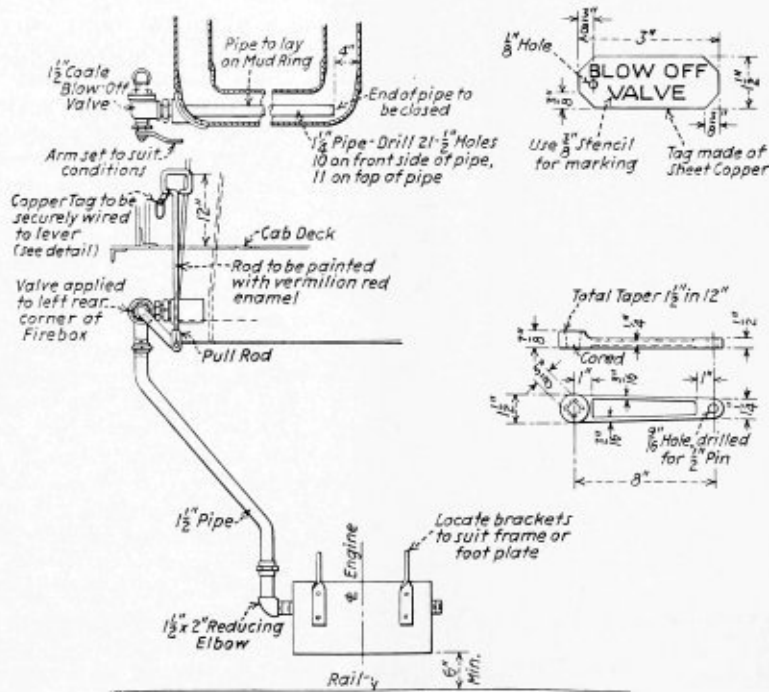 Pipe to lay
on Mud Ring
4"
1½" Coale
Blow-Off
Valve
End of pipe to
be closed
1¼" Pipe - Drill 21-½" Holes
10 on front side of pipe,
11 on top of pipe
Arm set to suit
conditions
Copper Tag to be
securely wired
to lever
(see detail)
12"
Cab Deck
Rod to be painted
with vermilion red
enamel
Valve applied
to left rear
corner of
Firebox
Pull Rod
1½" Pipe
Locate brackets
to suit frame or
foot plate
℄ Engine
1½" x 2" Reducing
Elbow
6"
Min.
Rail
⅛" Hole
3"
BLOW OFF
VALVE
1½"
Use ⅜" Stencil
for marking
⅜"
Tag made of
Sheet Copper
Total Taper 1½" in 12"
Cored
1"
1"
Hole, drilled
for ½" Pin
8"